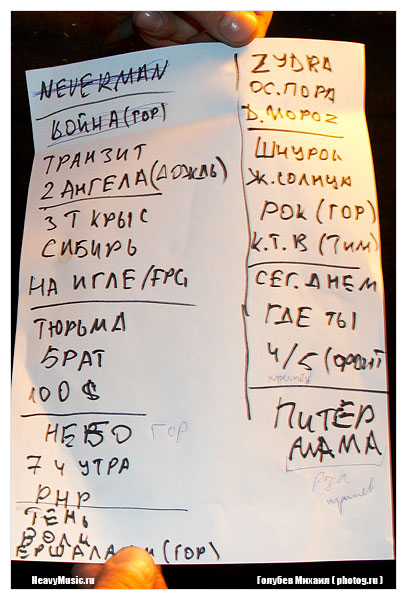 NEVERMAN
ВОЙНА (ГОР)
ТРАНЗИТ
2 АНГЕЛА (ДОЖДЬ)
3 Т КРЫС
СИБИРЬ
НА ИГЛЕ/FPG
ТЮРЬМА
БРАТ
100$
НЕБО ГОР
7 Ч УТРА
РНР
ТЕНЬ
ВОЛК
(ГОР)
ZYDRA
ОС. ПОРА
Д. МОРОZ
ШНУРОК
Ж. СОЛНЦА
РОК (ГОР)
К.Т.В (Тим)
СЕГ. ДНЕМ
ГДЕ ТЫ
4/5
припев
ПИТЕР
МАМА
рэп
припев
HeavyMusic.ru
Голубев Михаил ( photog.ru )